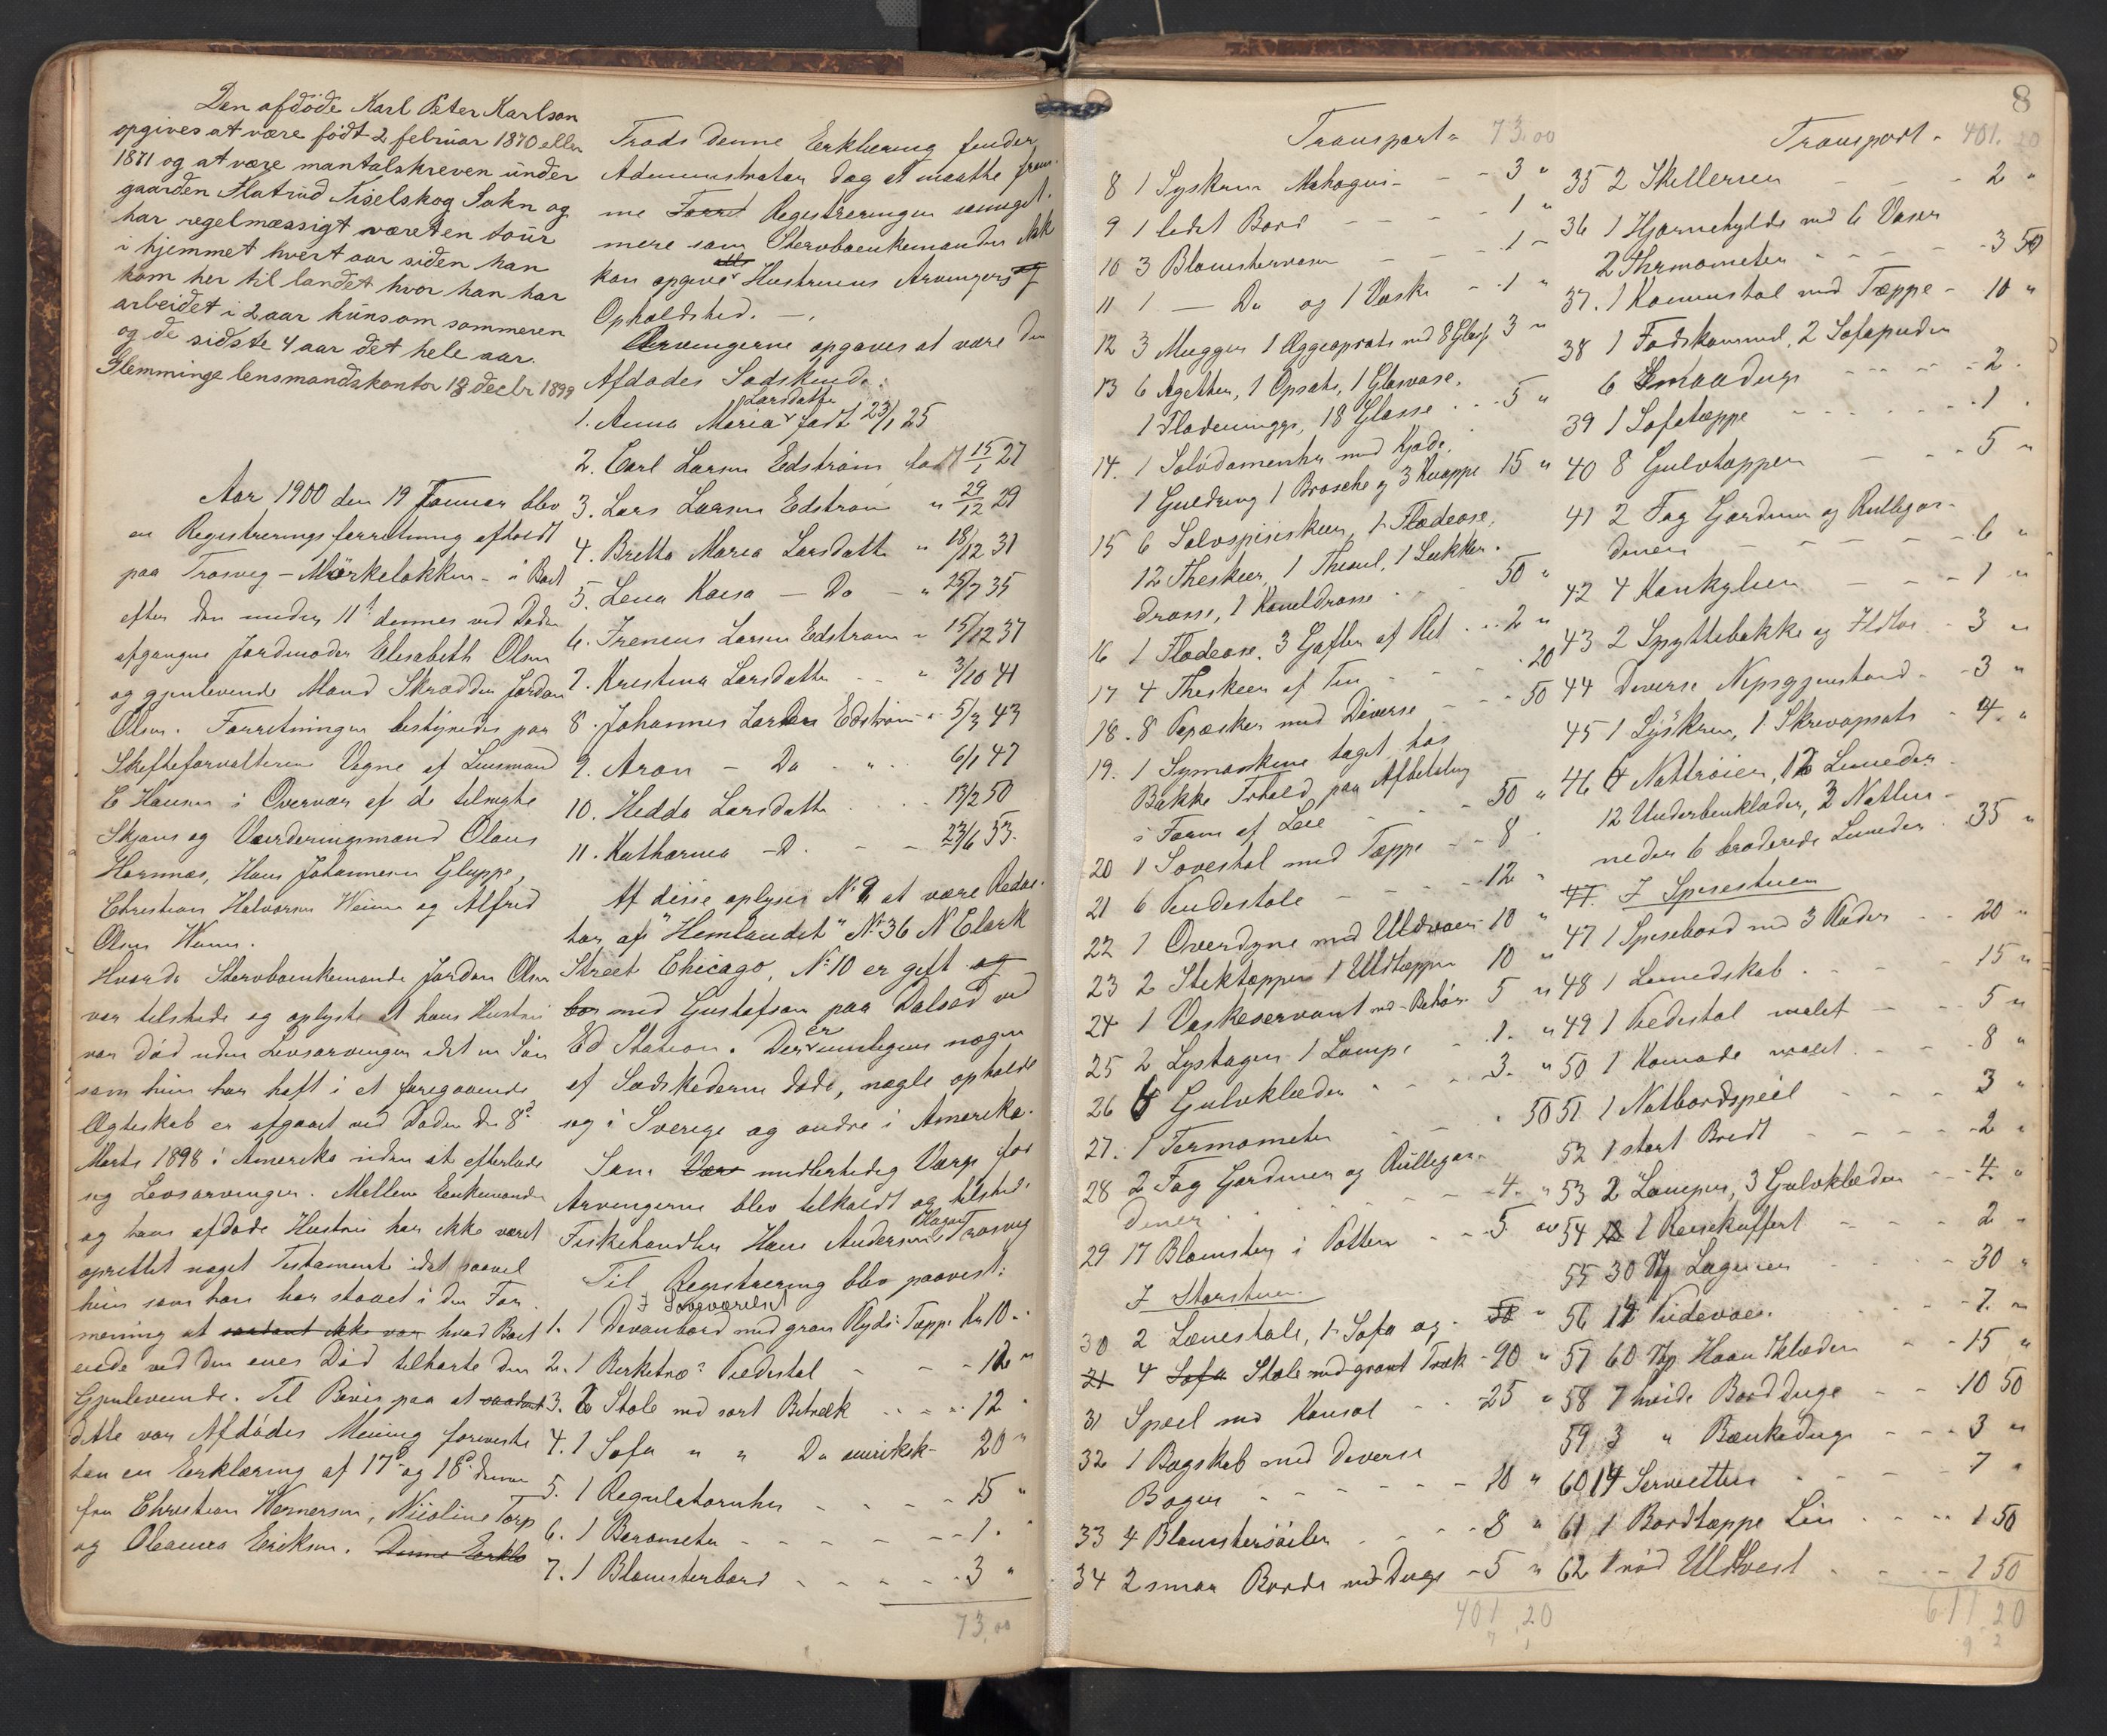 Den afdöde Karl Peter Karlson
opgives at være födt 2 februar 1870 eller
1871 og at være mantalskreven under
gaarden Flatrud Tiselskog Sokn og
har regelmæssigt været en tour
i hjemmet hvert aar siden han
kom her til landet hvor han har
arbeidet i 2 aar kuns om sommeren
og de sidste 4 aar det hele aar.
Glemminge lensmandskontor 13 decbr 1899
Aar 1900 den 19 Januar blev
en Registreringsforretning afholdt
paa Trosvig - Mörkeløkken - i Boet
efter den under 11te dennes ved Døden
afgangne Jordmoder Elisabeth Olsen
og gjenlevende Mand Skrædder Jordan
Olsen. Forretningen bestyredes paa
Skifteforvalterens Vegne af Lensmand
E Hansen i Overvær af de tilsagte
Skjøns og Vurderingsmænd Olaus
Hornnæs, Hans Johannesen Gluppe,
Christian Halvorsen Weum og Alfred
Olsen Weum.
Hvorda Stervboenkemanden Jordan Olsen
var tilstede og oplyste at hans Hustru
var død uden Livsarvinger idet en Søn
som hun har havt i et foregaaende
Ægteskab er afgaaet ved Døden de 8de
Marts 1898 i Amerika uden at efterlade
sig Livsarvinger. Mellem Enkemanden
og hans afdøde Hustru har ikke været
oprettet noget Testamente idet saavel
hun som han har staaet i den For
mening at saadant ikke var hvad Boet
eiede ved den enes Død tilhørte den
Gjenlevende. Til Bevis paa at saadant
dette var Afdødes Mening foreviste
han en Erklæring af 17de og 18de dennes
fra Christian Wernersen, Nicoline Torp
og Oleanna Eriksen. Denne Erklæ
Trods denne Erklæring finder
Administrator dog at maatte frem-
me Forret Registreringen saameget
mere som Stervboenkemanden ikke
kan opgive alle Hustruens Arvingers og
Opholdsted. -
Arvingerne opgaves at være den
Afdødes Sødskende:
1. Anna Maria Larsdatter født 23/1 25
2. Carl Larsen Edstrøm født 15/1 27
3. Lars Larsen Edstrøm " 29/12 29
4. Britta Maria Larsdatter " 18/12 31
5. Lena Kaisa - Do - " 25/7 35
6. Ireneus Larsen Edstrøm " 15/12 37
7. Kristina Larsdatter - - " 3/10 41
8. Johannes Larsen Edstrøm " 5/3 43
9. Aron - Do - " 6/1 47
10. Hedda Larsdatter 13/2 50
11. Katharina - D. - - 23/6 53.
Af disse oplyses No 9 at være Redac-
tør af "Hemlandet" No 36 N Clark
Street Chicago, No 10 er gift og
bor med Gustafson paa Dalsed ved
Ed Station. Der er muligens nogen
af Sødskederne døde, nogle opholde
sig i Sverige og andre i Amerika.
Som Vær midlertidig Værge for
Arvingerne blev tilkaldt og tilsted
Fiskehandler Hans Andersen Hagen Trosvig
Til Registrering blev paavist:
I Soveværelset
1. 1 Divanbord med grøn Plyds Tæppe Kr 10 "
2. 1 Birketræs Piedestal - - - 12 "
3. 6 Stole med sort Betræk - - - 12 "
4. 1 Sofa " " Do amerikk - 20 "
5. 1 Regulatoruhr - - - - 15 "
6. 1 Barometer - - - - - 1 "
7. 1 Blomsterbord - - - - - 3 "
73,00
8
Transport " 73.00
8 1 Syskrin Mahogni - - - 3 "
9 1 lidet Bord - - - - 1 "
10 3 Blomstervaser - - - 1 "
11 1 - Do og 1 Vaske - 1 "
12 3 Mugger 1 Æggeopsats med 8 Glas 3 "
13 6 Agetter, 1 Opsats, 1 Glasvase,
1 Flødemugge, 18 Glasse - - 5 "
14. 1 Sølvdameuhr med Kjæde
1 Guldring 1 Brosche og 3 Knappe 15 "
15 6 Sølvspiseskeer, 1 Flødeøse,
12 Theskeer, 1 Thesil, 1 Sukker-
drosse, 1 Kaneldrosse - 50 "
16 1 Flødeøse, 3 Gafler af Plet - 2 "
17 4 Theskeer af Tin - - - 20
18. 8 Papæsker med Diverse - - 50
19. 1 Symaskine taget hos
Bakke Frhald paa Afbetaling
i Form af Leie - - - 50 "
20 1 Sovestol med Tæppe - - 8 "
21 6 Pindestole - - - - 12 "
22 1 Overdyne med Uldvaar 10 "
23 2 Stiktæpper 1 Uldtæppe 10 "
24 1 Vaskeservant med Behör 5 "
25 2 Lystager 1 Lampe - 1 "
26 6 Gulvklæder - - - 3 "
27. 1 Termometer - - - 50
28 2 Fag Gardiner og Rullegar-
diner - - - - - 4 "
29 17 Blomster i Potter - - 5 "
I Storstuen
30 2 Lænestole, 1 Sofa og 50 "
21 4 Sofa Stole med grønt Træk - 90 "
31 Speil med Konsol - - 25 "
32 1 Bogskab med diverse
Bøger - - - - - - 10 "
33 4 Blomstersöiler - - - 8 "
34 2 smaa Borde med Duge - 5 "
401,20
Transport - 401.20
35 2 Skillerier - - - 2 "
36 1 Hjørnehylde med 6 Vaser
2 Thermometer - - - 3 50
37. 1 Kommestol med Tæppe - 10 "
38 1 Fodskammel, 2 Sofapuder
6 Smaaduge - - - - 2 .
39 1 Sofatæppe - - - - 1 .
40 8 Gulvtæpper - - - 5 "
41 2 Fag Gardiner og Rullegar-
diner - - - - - - 6 "
42 4 Konkylier - - - 1 "
43 2 Spyttebakke og Ildtøi - 3 "
44 Diverse Nipsgjenstand - 3 "
45 1 Lyskrone, 1 Skriveopsats - 4. "
46 4 Nattröier, 12 Linneder
12 Underbenklæder, 2 Natlin-
neder 6 broderede Linneder - 35 "
47. I Spisestuen
47 1 Spisebord med 3 Plader - - 20 "
48 1 Linnedskab - - - - 15 "
49 1 Piedestal malet - - - 5 "
50 1 Komode malet - - - 8 "
51 1 Natbordspeil - - - 3 "
52 1 stort Bredt - - - - 2 "
53 2 Lamper, 3 Gulvklæder - - 4. "
54 1 Reisekuffert - - - 2 -
55 30 Stk Lagener - - - 30 "
56 14 Pudevaar - - - - 7. "
57 60 Stk Haandklæder - - 15 "
58 7 hvide Bordduge - - 10 50
59 3 " Bænkeduge - - - 3 "
60 14 Servietter - - - - 7 "
61 1 Bordtæppe Lin - - - 1 50
62 1 rød Uldvest - - - - 1 50
611.20